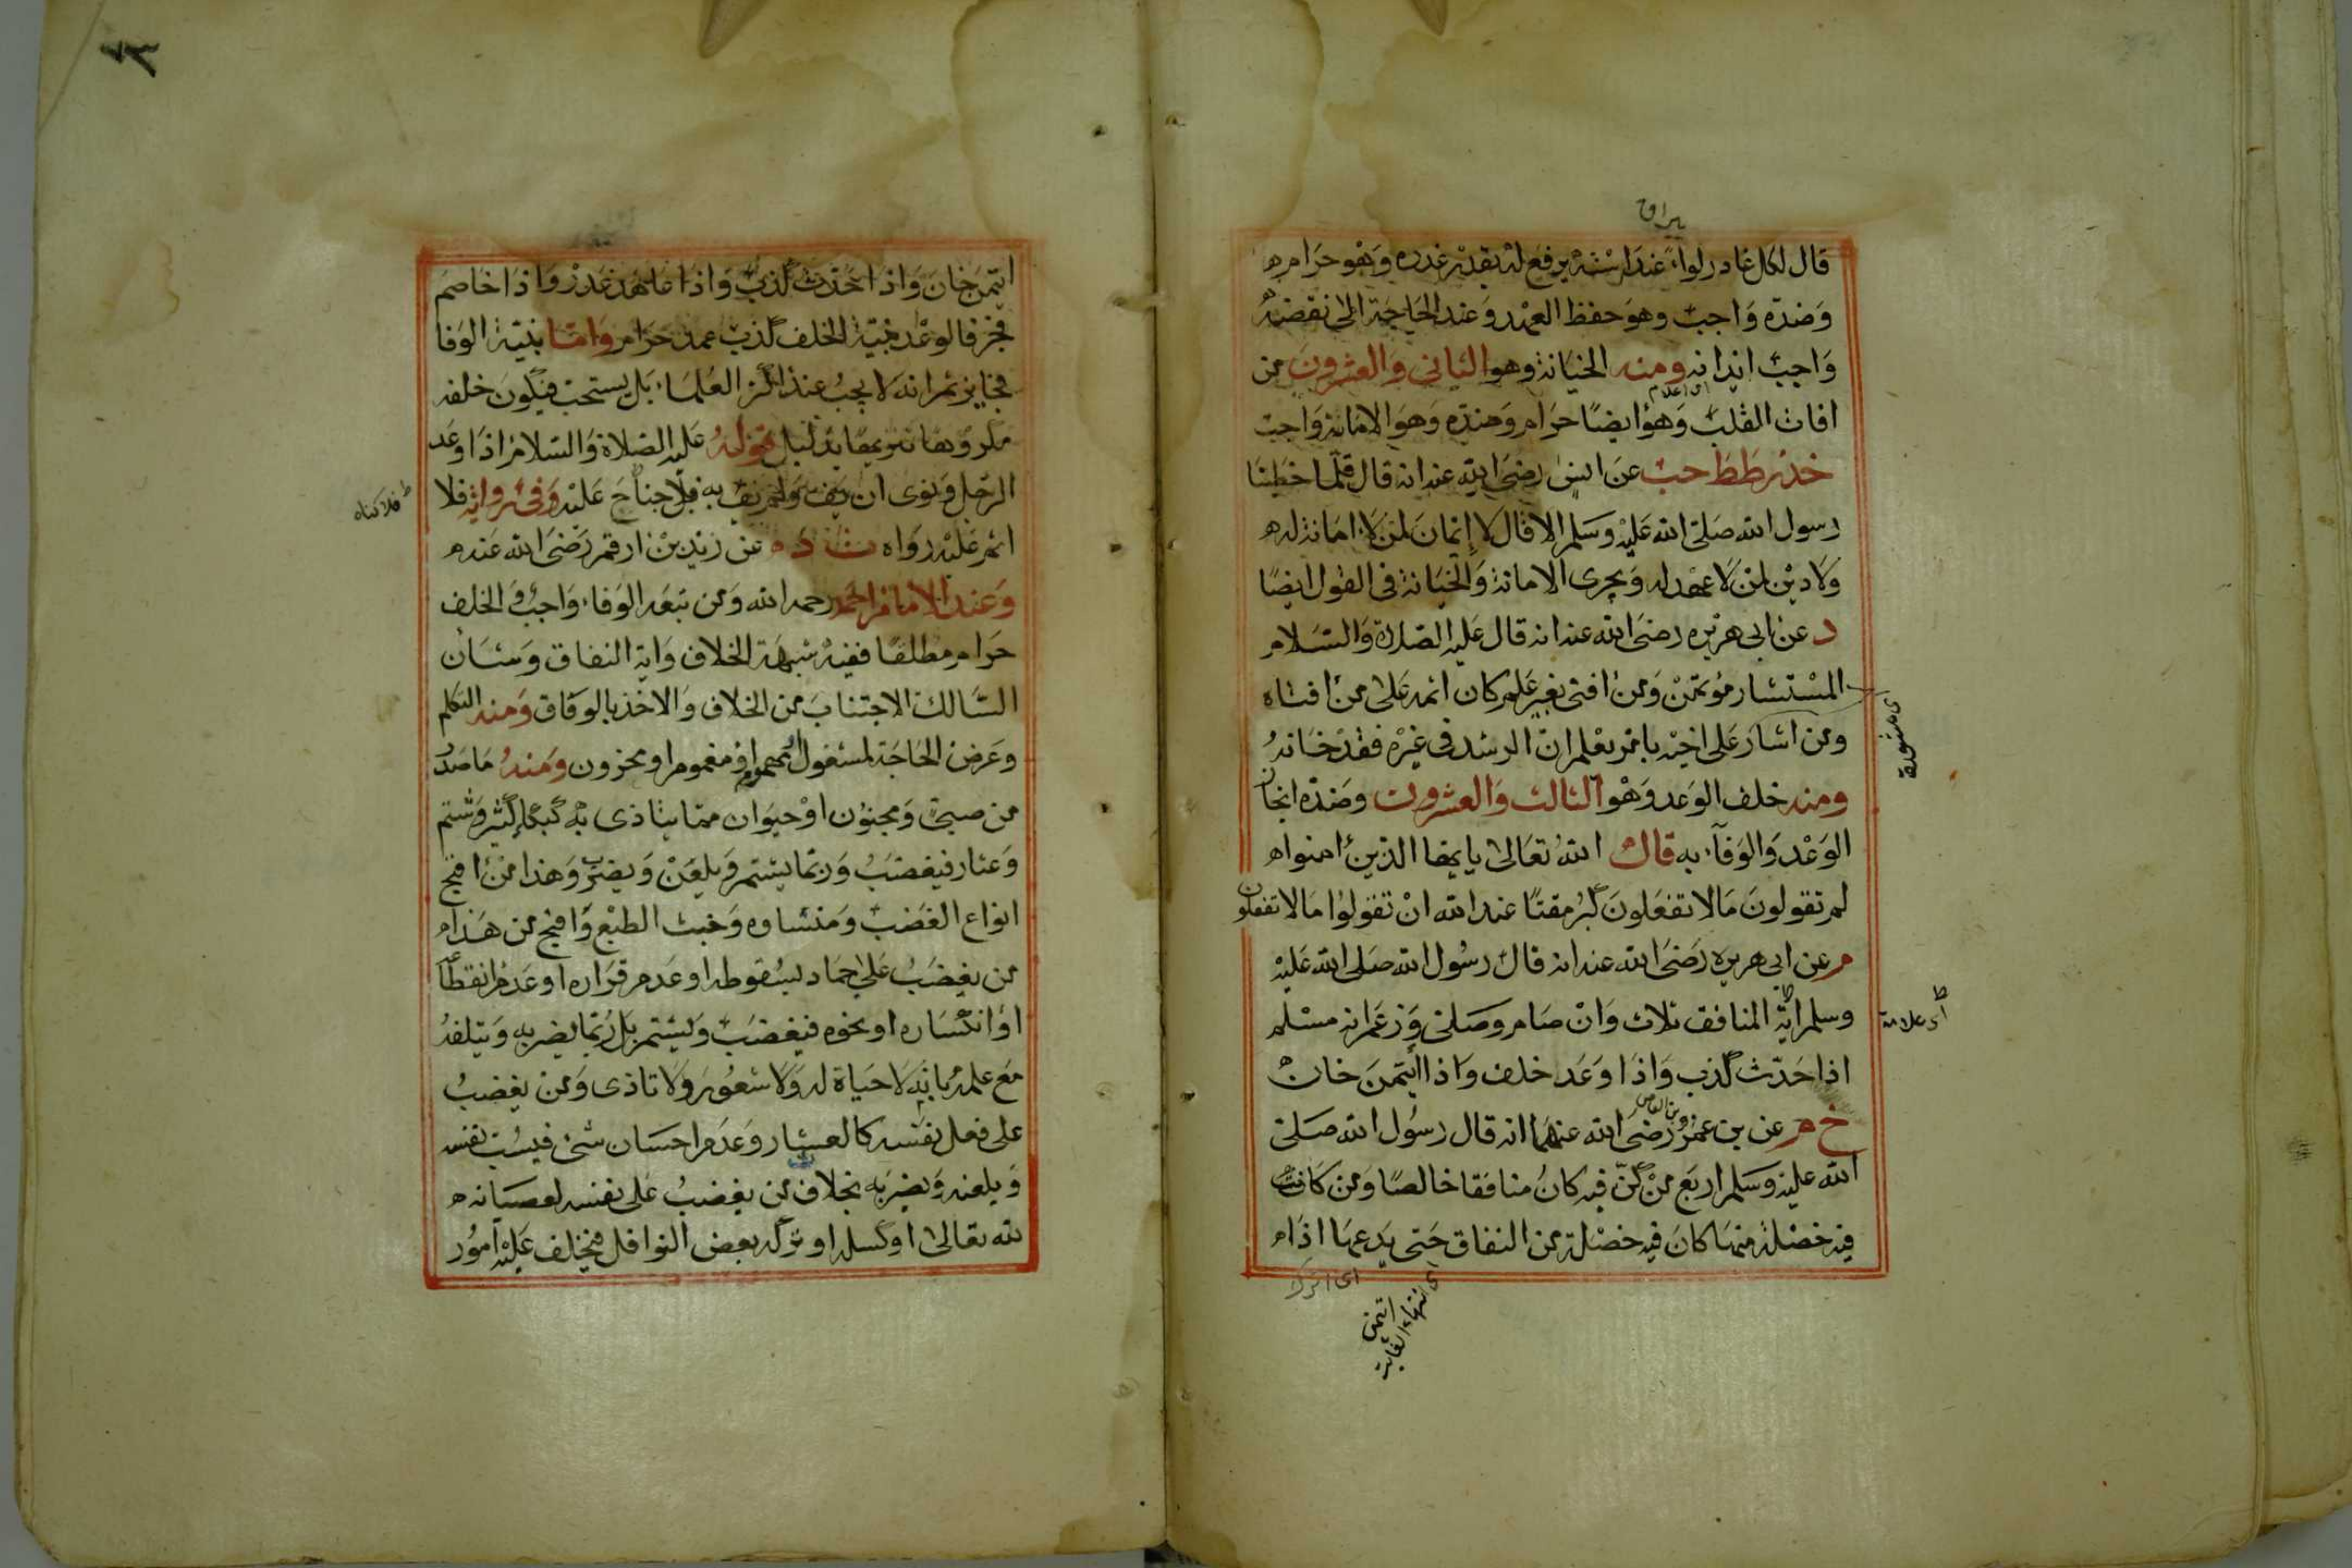 بيراق
قال لكل غادر لواء عند استه يرفع له بقدر غدره وهو حرام
وضده واجب وهو حفظ العهد وعند الحاجة الى نقضه
واجب ايذانه ومنه الخيانة وهو الثاني والعشرون من
اى اعلام
افات القلب وهو ايضا حرام وضده وهو الامانة واجب
حد زططحب عن انس رضى الله عنه انه قال قلما خطبنا
رسول الله صلى الله عليه وسلم الا قال لا إيمان لمن لا امانة له
ولا دين لمن لا عهد له ويجرى الامانة والخيانة فى القول ايضا
د عن ابى هريره رضى الله عنه انه قال عليه الصلاة والسلام
المستشار مؤتمن ومن افتى بغير علم كان اثمه على من افتاه
اى مشورة
ومن اشار على اخيه بامر يعلم ان الرشد فى غيره فقد خانه
ومنه خلف الوعد وهو الثالث والعشرون وضده انجاز
الوعد والوفاء به قال الله تعالى يا يها الذين امنوا
لم تقولون مالا تفعلون كبر مقتا عند الله ان تقولوا مالا تفعلون
م عن ابى هريرة رضى الله عنه انه قال رسول الله صلى الله عليه
وسلم اية المنافق ثلاث وان صام وصلى وزعم انه مسلم
اى علامة
اذا حدث كذب واذا وعد خلف واذا ائتمن خان
خ م عن بن عمرو بن العاص رضى الله عنهما انه قال رسول الله صلى
الله عليه وسلم اربع من كن فيه كان منافقا خالصا ومن كانت
فيه خصلة منها كان فيه خصلة من النفاق حتى يدعها اذا
اى اترك
اى انتهاء الغاية
ائتمن
ايتمن خان واذا حدث كذب واذا عاهد غدر واذا خاصم
فجر فالوعد بنية الخلف كذب عمد حرام واما بنية الوفا
فجايز ثم انه لا يجب عند اكثر العلماء بل يستحب فيكون خلفه
مكروها تنزيها بدليل قوله عليه الصلاة والسلام اذا وعد
الرجل ونوى ان يفى ولم يف به فلا جناح عليه وفى رواية فلا
فلا كناه
اثم عليه رواه ت د عن زيد بن ارقم رضى الله عنه
وعند الامام احمد رحمه الله ومن تبعه الوفاء واجب والخلف
حرام مطلقا ففيه شبهة الخلاف واية النفاق وشان
السالك الاجتناب من الخلاف والاخذ بالوفاق ومنه التكلم
وعرض الحاجة لمشغول مهموم او مغموم او محزون ومنه ماصدر
من صبى ومجنون او حيوان مما يتاذى به كبكاء كثير وشتم
وعثار فيغضب وربما يشتم ويلعن ويضرب وهذا من اقبح
انواع الغضب ومنشاوه وخبث الطبع واقبح من هذا
من يغضب على جماد لسقوطه او عدم قراره او عدم انقطاع
او انكساره او نحوه فيغضب ويشتم بل ربما يضربه ويتلفه
مع علمه بانه لا حياة له ولا شعور ولا تاذى ومن يغضب
على فعل نفسه كالعثار وعدم احسان شئ فيسب نفسه
ويلعنه ويضربه بخلاف من يغضب على نفسه لعصيانه
لله تعالى او كسله او تركه بعض النوافل فيخلف عليه امور